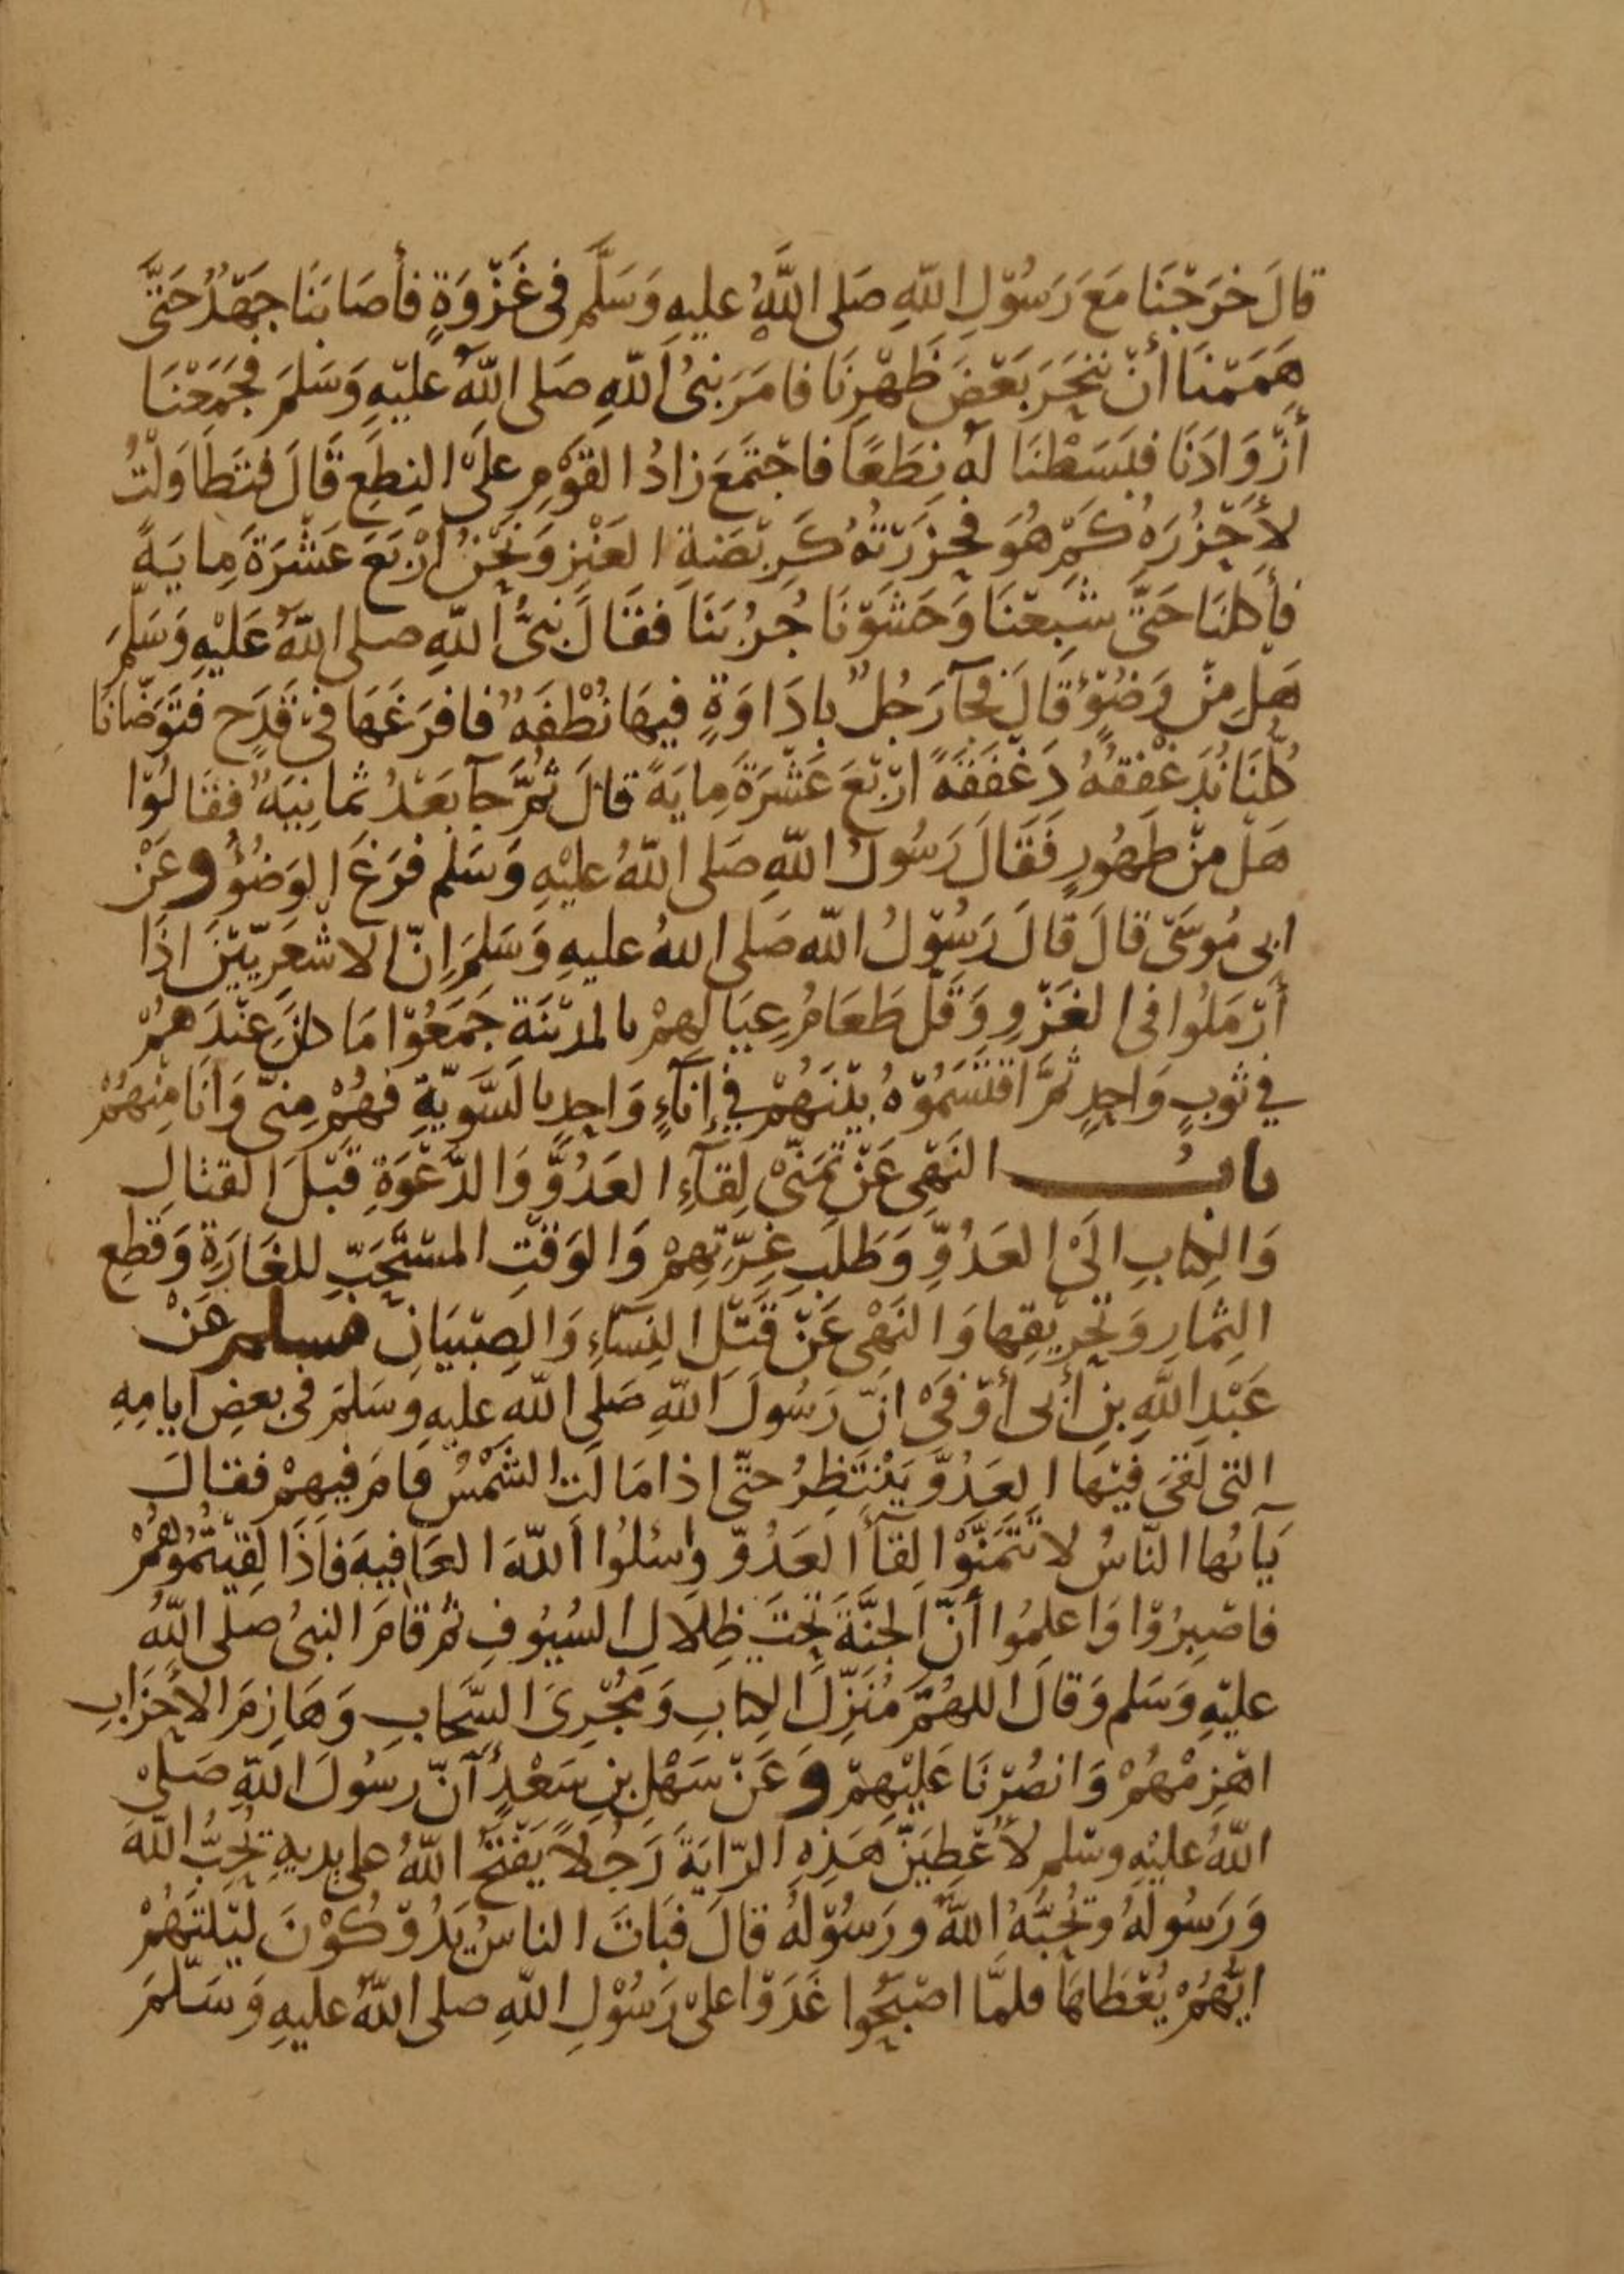 قَالَ خَرَجْنَا مَعَ رَسُوْلِ اللّٰهِ صَلى اللّٰهُ عليهِ وَسَلَّمَ فى غَزْوَةٍ فأصَابَنَا جَهْدُ حَتَّى
هَمَمْنَا أنْ نَنْحَرَ بَعْضَ ظَهْرِنَا فامَرَ نبىُ اللّٰهِ صَلى اللّٰهُ عليْهِ وَسَلمَ فجَمَعْنَا
أزْوَادَنَا فبَسَطْنَا لَهُ نِطَعًا فاجْتَمَعَ زادُ القوْمِ عَلىَ النِطَعِ قَالَ فتَطَاوَلْتُ
لأحْزُرَهُ كَمْ هُوَ فحَزَرْتهُ كَرَبْضَةِ العَنْزِ وَنَحْنُ ارْبَعَ عَشْرَةَ مِايَةً
فأكلنَا حَتَّى شَبِعْنَا وَحَشَوْنَا جُرُبَنَا فقَالَ نَبىُّ اللّٰهِ صلى اللّٰهُ عَليْهِ وَسَلَّمَ
هَلْ مِنْ وَضُوْءٍ قَالَ فجَآ رَجُلٌ بِادَاوَةٍ فيهَا نُطْفَهٌ فافرَغهَا فىْ قَدَحٍ فتَوَضّانَا
كُلّنَا نُدَغْفِقهُ دَغْفَقَهً ارْبَعَ عَشْرَةَ مِايَةً قالَ ثُمَّ جآ بَعْدُ ثمانِيَهٌ فقَالوُا
هَلْ مِنْ طَهُورٍ فَقَالَ رَسُولُ اللّٰهِ صَلى اللّٰهُ عليْهِ وَسَلم فرَغَ الوَضُوُّ وعَنْ
ابى مُوسَى قالَ قالَ رَسُوْلُ اللّٰه صَلى اللهُ عليهِ وَسَلمَ اِنّ الاشْعَرِيّيْنَ اذَا
أرْمَلوُا فى الغَزْوِ وَقَلّ طَعَامُ عِيَالِهِمْ بالمدْيْنَةِ جَمَعُوْا مَا كانَ عِنْدَهُمْ
في ثوبٍ وَاحِدٍ ثمَّ اقتَسَمُوْهُ بَيْنَهُمْ فِي إنآءٍ وَاحِدٍ بالسَّوِيّةِ فهُمْ مِنىّ وَأنَا مِنْهُمْ
بابُ النَهْىِ عَنْ تَمَنّىْ لِقآءِ العَدُوِّ وَالدّعْوَةِ قَبْلَ القتالِ
وَالكِتابِ الَى العَدُوِّ وَطَلَبِ غِرّتِهِمْ وَالوَقْتِ المسْتَحَبِّ للغَارَةِ وَقَطعِ
الثِمَارِ وَتَحْرِيْقِهَا وَالنَهْى عَنْ قَتْلِ النِسَآءِ وَالصِبْيَانِ مسلم عَنْ
عَبْدِ اللّٰهِ بنِ أبى أوْفىَْ انّ رَسُولَ اللّٰهِ صَلى اللّٰهِ عليهِ وسَلمَ فى بعضِ ايامِهِ
التى لَقىَ فيْهَا العَدُوَّ يَنْتَظِرُ حتّى اذا مَا لَت الشَمْسُ قامَ فيهِمْ فقالَ
يَآ ايُها النّاسُ لا تَتَمَنّوْا لِقَآ العَدُوّ وَاسْلُوا اللّٰهَ العَافيةَ فاذَا لقيْتُمُوهُمْ
فاصْبِرُوْا وَاعْلمُوا أنَّ الجَنَّةَ تحْتَ ظِلَالِ السُيُوفِ ثم قَامَ النبىُ صَلى اللّٰهُ
عليْهِ وَسَلم وَقالَ اللهُمَّ مُنَزِّلَ الكِتابِ وَمُجْرِىَ السَّحَابِ وَهَازِمَ الأحْزَابِ
اهْزِمْهُمْ وَانْصُرْنَا عَليْهِمْ وَعَنْ سَهْلِ بنِ سَعْدٍ أنّ رسُولَ اللّٰهِ صَلىْ
اللّٰهُ عليْهِ وسَلم لأعْطِيَنّ هَذِهِ الرّايَةَ رَجُلاً يَفْتَحُ اللّٰهُ على يديهِ يُحِبُّ اللّٰهَ
وَرَسُولَهُ وَيُحِبُّهُ اللّٰهُ وَرَسُوْلُهُ قالَ فبَاتَ الناسُ يَدُوْكُوْنَ ليْلتَهُمْ
ايّهُمْ يُعْطَاهَا فلمَّا اصْبَحُوا غَدَوْا علىْ رَسُوْلِ اللّٰهِ صلى اللّٰهُ عليهِ وَسَلّمَ